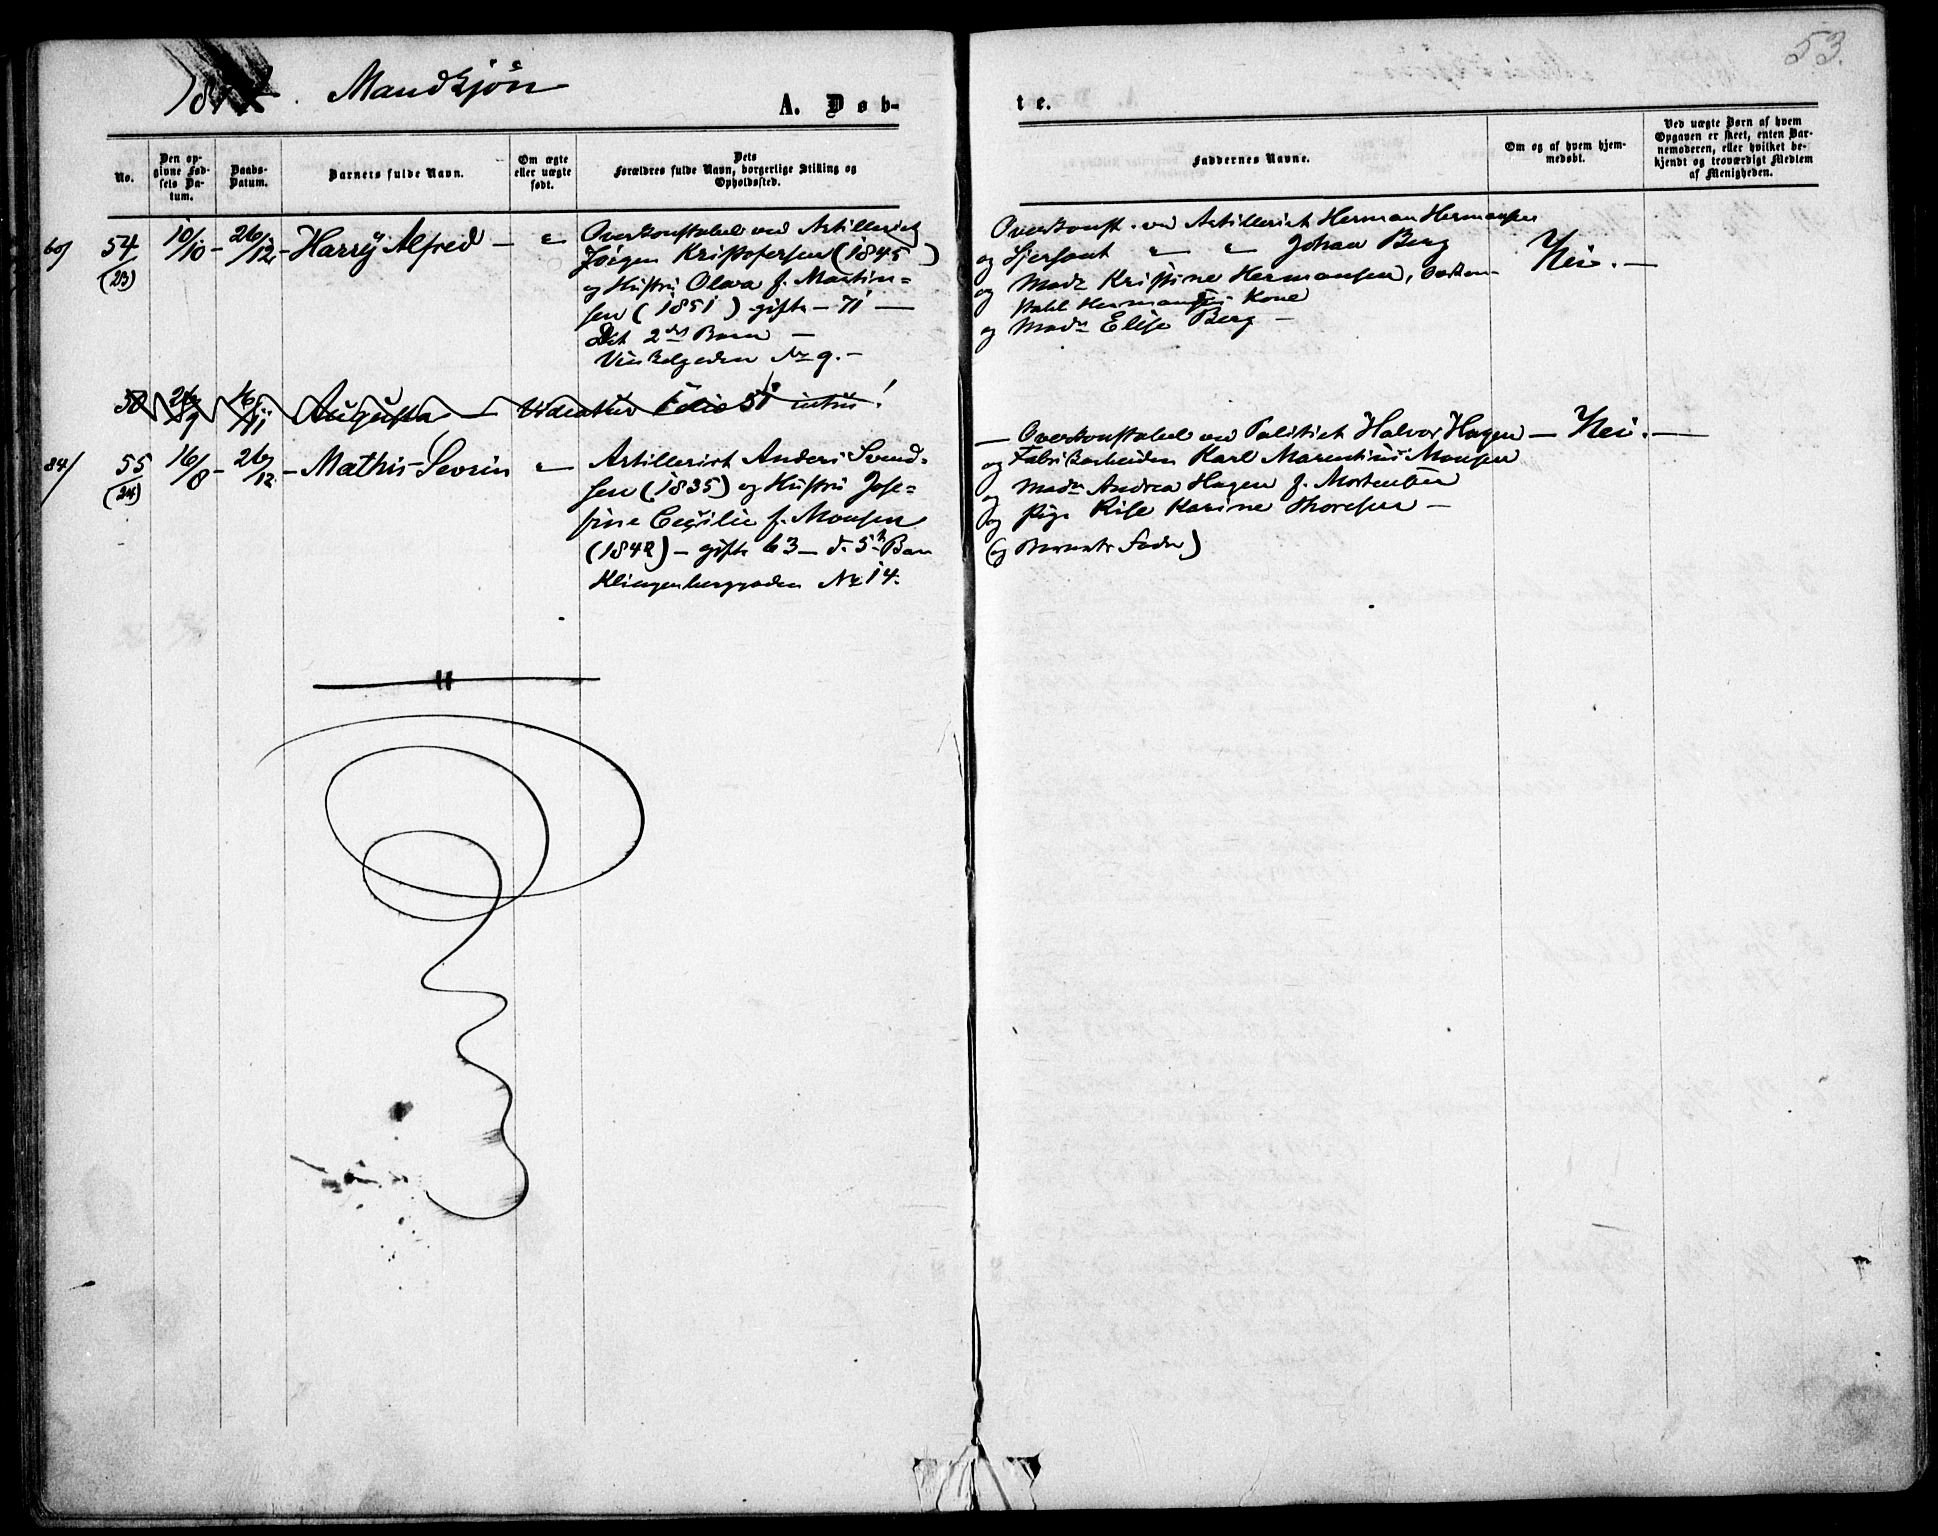 53.
Mandkjøn
A. Døb-
te.
No.
Den op-
givne Fød-
sels Da-
tum.
Daabs-
Datum.
Barnets fulde Navn.
Om ægte
eller uægte
født.
Dets
Forældres fulde Navn, borgerlige Stilling og
Opholdssted.
Faddernes Navne.
Om og af hvem hjem-
medøbt.
Ved uægte Børn af hvem
Opgaven er skeet, enten Bar-
nemoderen, eller hvilket be-
kjendt og troværdigt Medlem
af Menigheden.
60/ 54 (23) 10/10 - 26/12 - Harry Alfred -
Overkonstabel ved Artilleriet
Jörgen Kristofersen (1845)
og Hustru Olava f. Martin=
sen (1851) gifte - 71 -
Det 2det Barn -
Vinkelgaden No 9. -
Overkonst. ved Artilleriet Herman Hermansen
og Sjersant " " Johan Berg
og Mad. Kristine Hermansen,
Hermansens Kone
og Mad. Elise Berg -
Nei. -
26/9 16/11 Augusta - Videatur Folio 51 intus!
84/ 55 (24) 16/8 - 26/12 - Mathis Sevrin
Artillerist Anders Svend-
sen (1835) og Hustru Jose=
fine Cecilie f. Monsen
(1842) - gifte 63 - d. 5te Barn
Klingenberggaden No 14.
- Overkonstabel ved Politiet Halvor Hagen - Nei. -
og Fabrikarbeider Karl Marentius Monsen
og Mad. Andrea Hagen f. Mortensen
og Pige Karine Thoresen -
(og Barnets Fader)